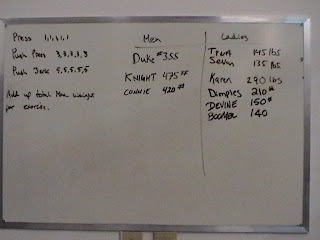 Press 1,1,1,1,1
Push Press 3,3,3,3,3
Push Jerk 5,5,5,5,5
Add up total Max weight
per exercise.
Men
Duke #355
KNIGHT 475##
CONNIE 420##
Ladies
145 lbs
Seven 135 lbs
Karen 290 lbs
Dimples 210##
DEVINE 150#
BOOMER 140